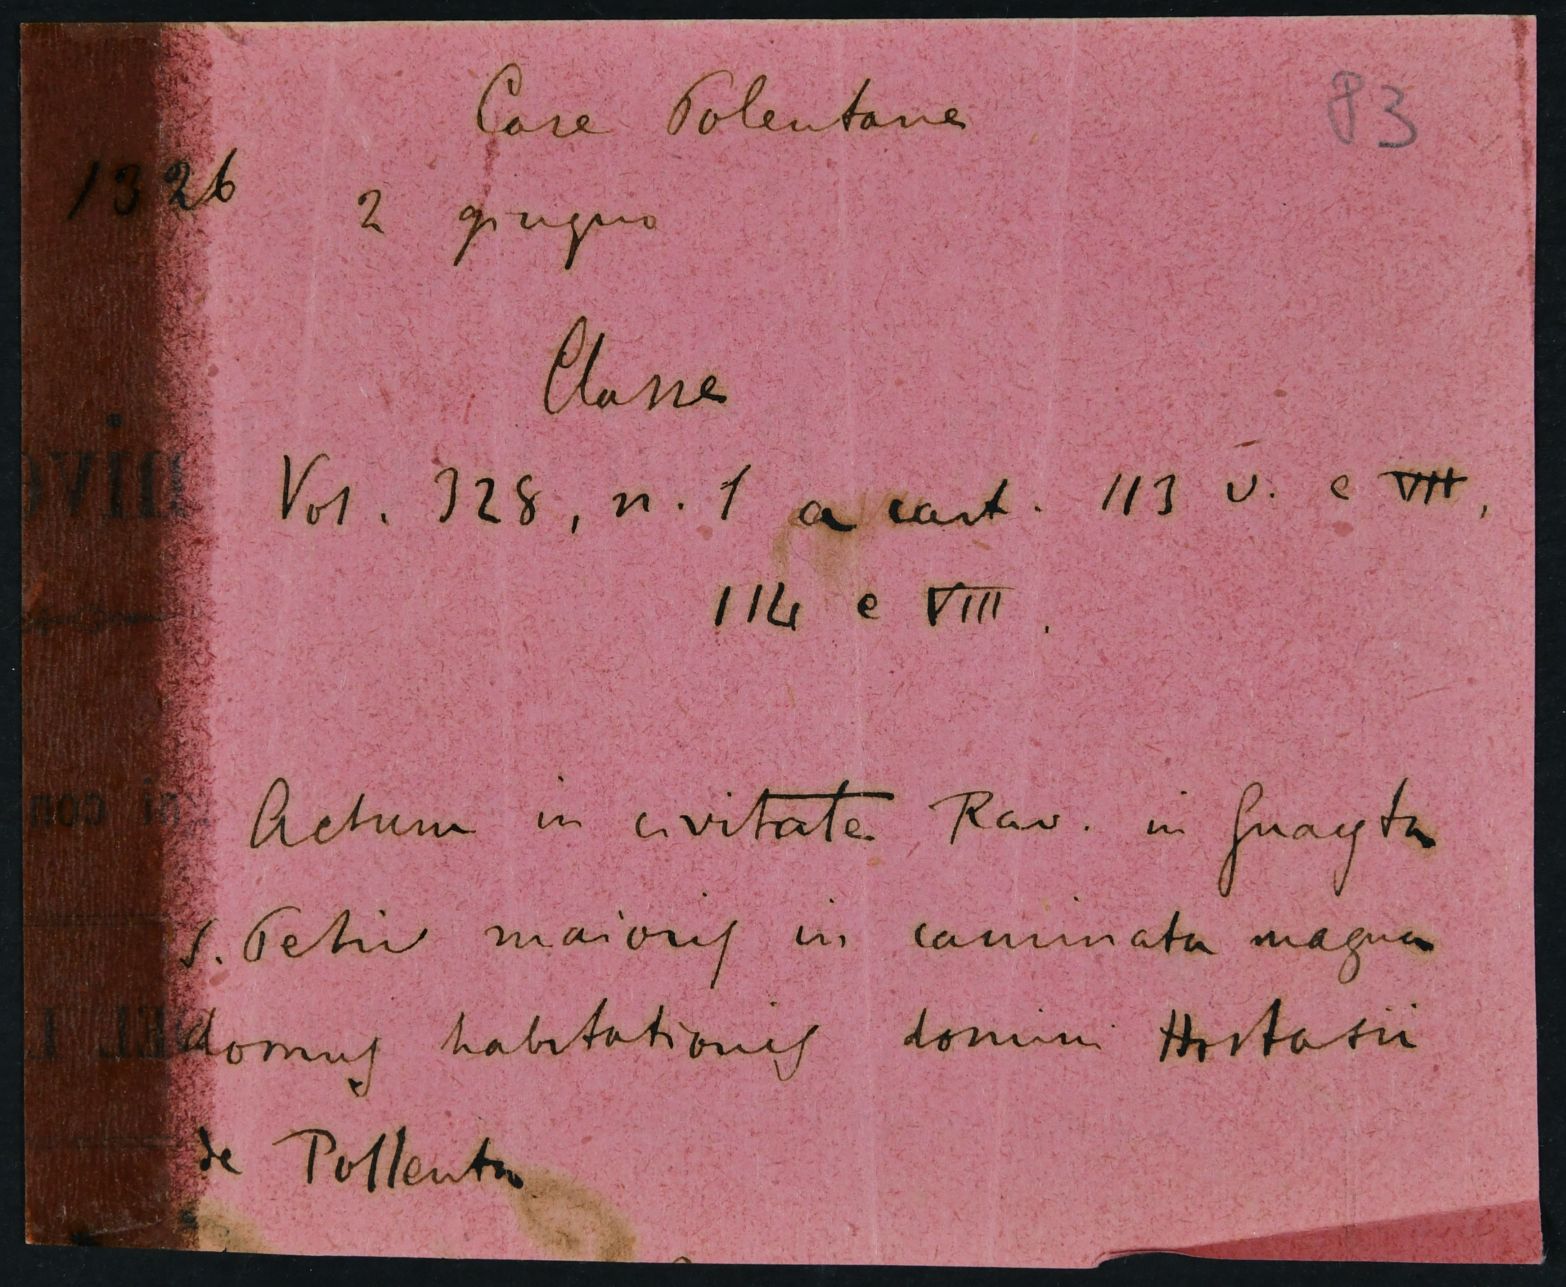 Case Polentane
83
1326 2 giugno
Classe
Vol. 328, n. 1 a cart. 113 v. e VII,
114 e VIII.
Actum in civitate Rav. in Guayta
S. Petri maioris in caminata magna
domus habitationis domini Hostasii
de Pollenta